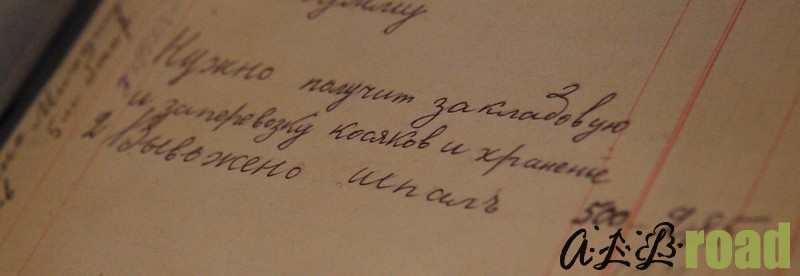 сумму
Нужно получит за кладовую
и за перевозку косяков и хранение
2 Вывьжено шпалъ 500
ALB road